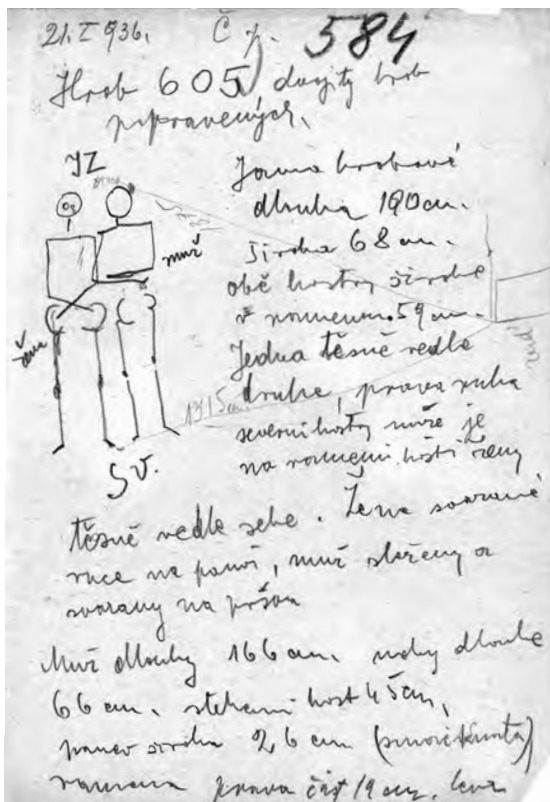 21. I 936. Č p. 584
Hrob 605) dvojitý hrob
popravených.
JZ
Jama hrobová
dlouha 190 cm.
široka 68 cm.
muž
obě kostry široke
v ramenou 59 cm.
Jedna těsně vedle
žena
druhe, prava ruka
1315 cm.
severni kostry muže je
na rameni kosti ženy
SV.
těsně vedle sebe. Žena svazané
ruce na panvi, muž složeny a
svazany na prsou
Muž dlouhy 166 cm. nohy dlouhe
66 cm. stehenni kost 45 cm,
panev široka 26 cm
ramena prava část 19 cm. leva